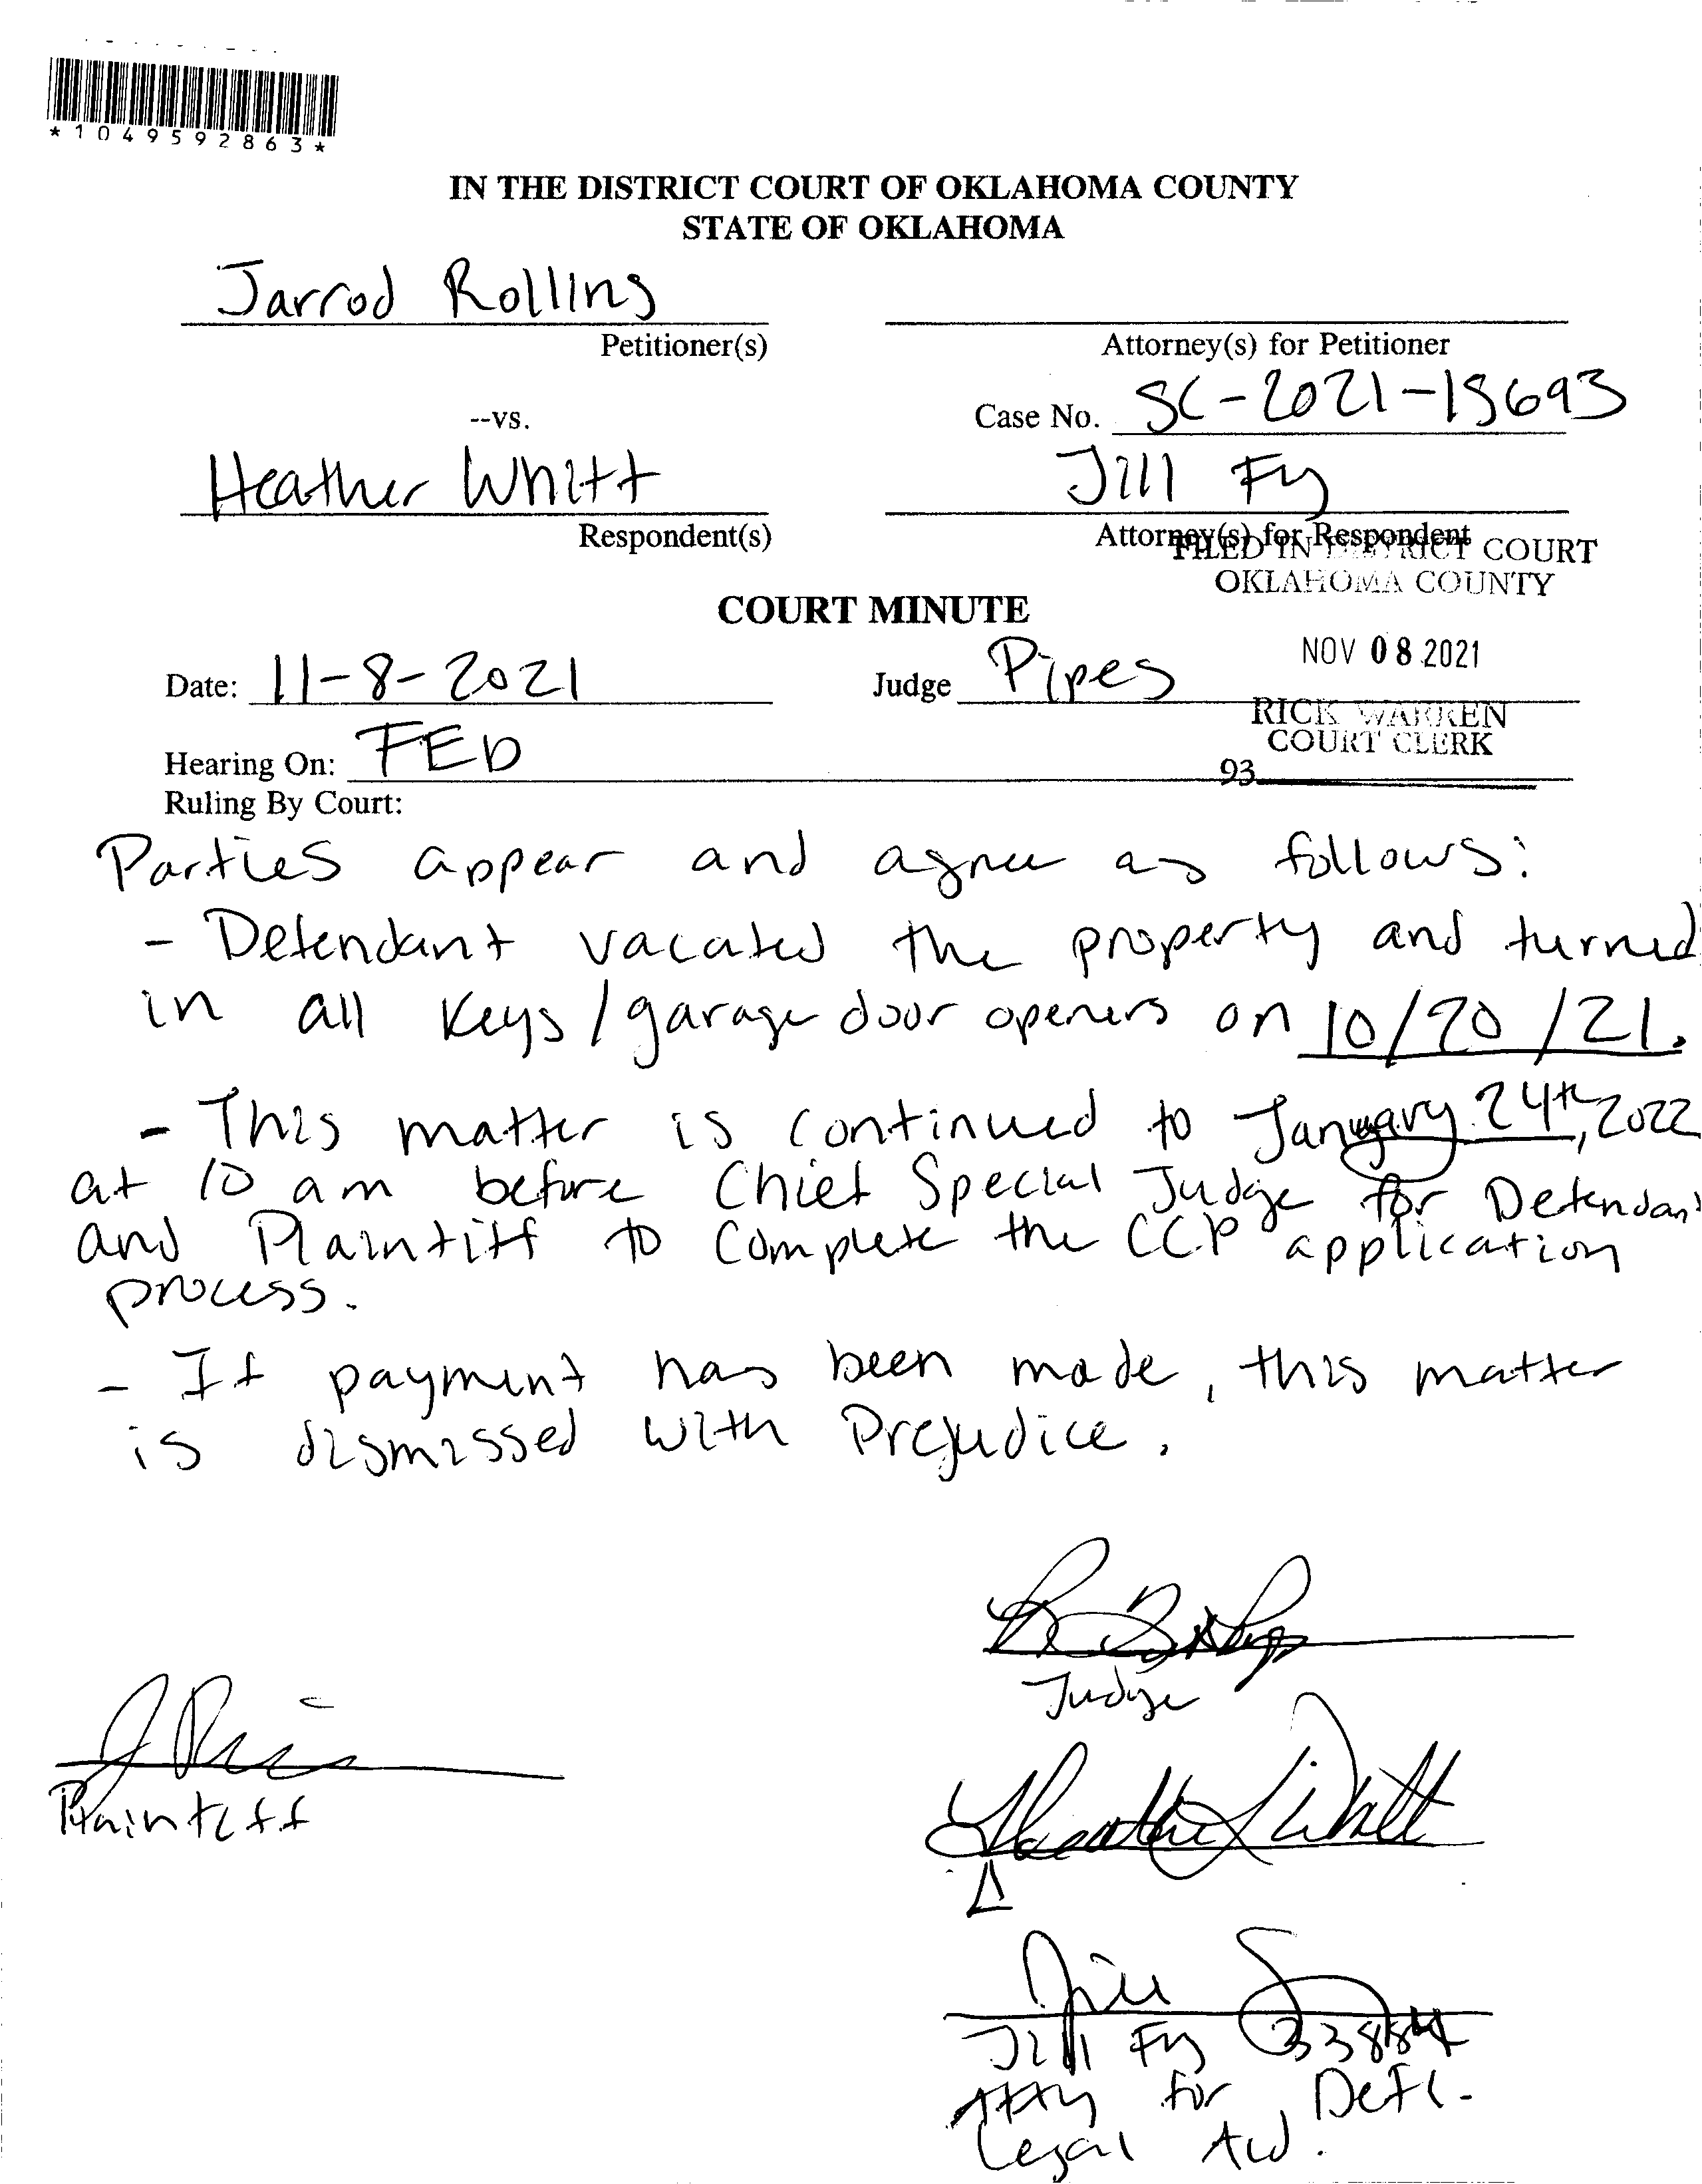 *1049592863*
IN THE DISTRICT COURT OF OKLAHOMA COUNTY
STATE OF OKLAHOMA
Jarrod Rollins
Petitioner(s)
Attorney(s) for Petitioner
--vs.
Case No. SC-2021-15693
Heather Whitt
Jill Fy
Respondent(s)
Attorney(s) for Respondent
FILED IN DISTRICT COURT
OKLAHOMA COUNTY
COURT MINUTE
NOV 08 2021
Date: 11-8-2021
Judge Pipes
RICK WARREN
COURT CLERK
Hearing On: FED
93
Ruling By Court:
Parties appear and agree as follows:
- Defendant vacated the property and turned
in all keys/garage door openers on 10/20/21.
- This matter is continued to January 24th, 2022
at 10 am before Chief Special Judge for Defendant
and Plaintiff to complete the CCP application
process.
- If payment has been made, this matter
is dismissed with Prejudice.
Judge
Plaintiff
Heather Whitt
Δ
Jill
Jill Fy 33884
Atty for Def.
Legal Aid.